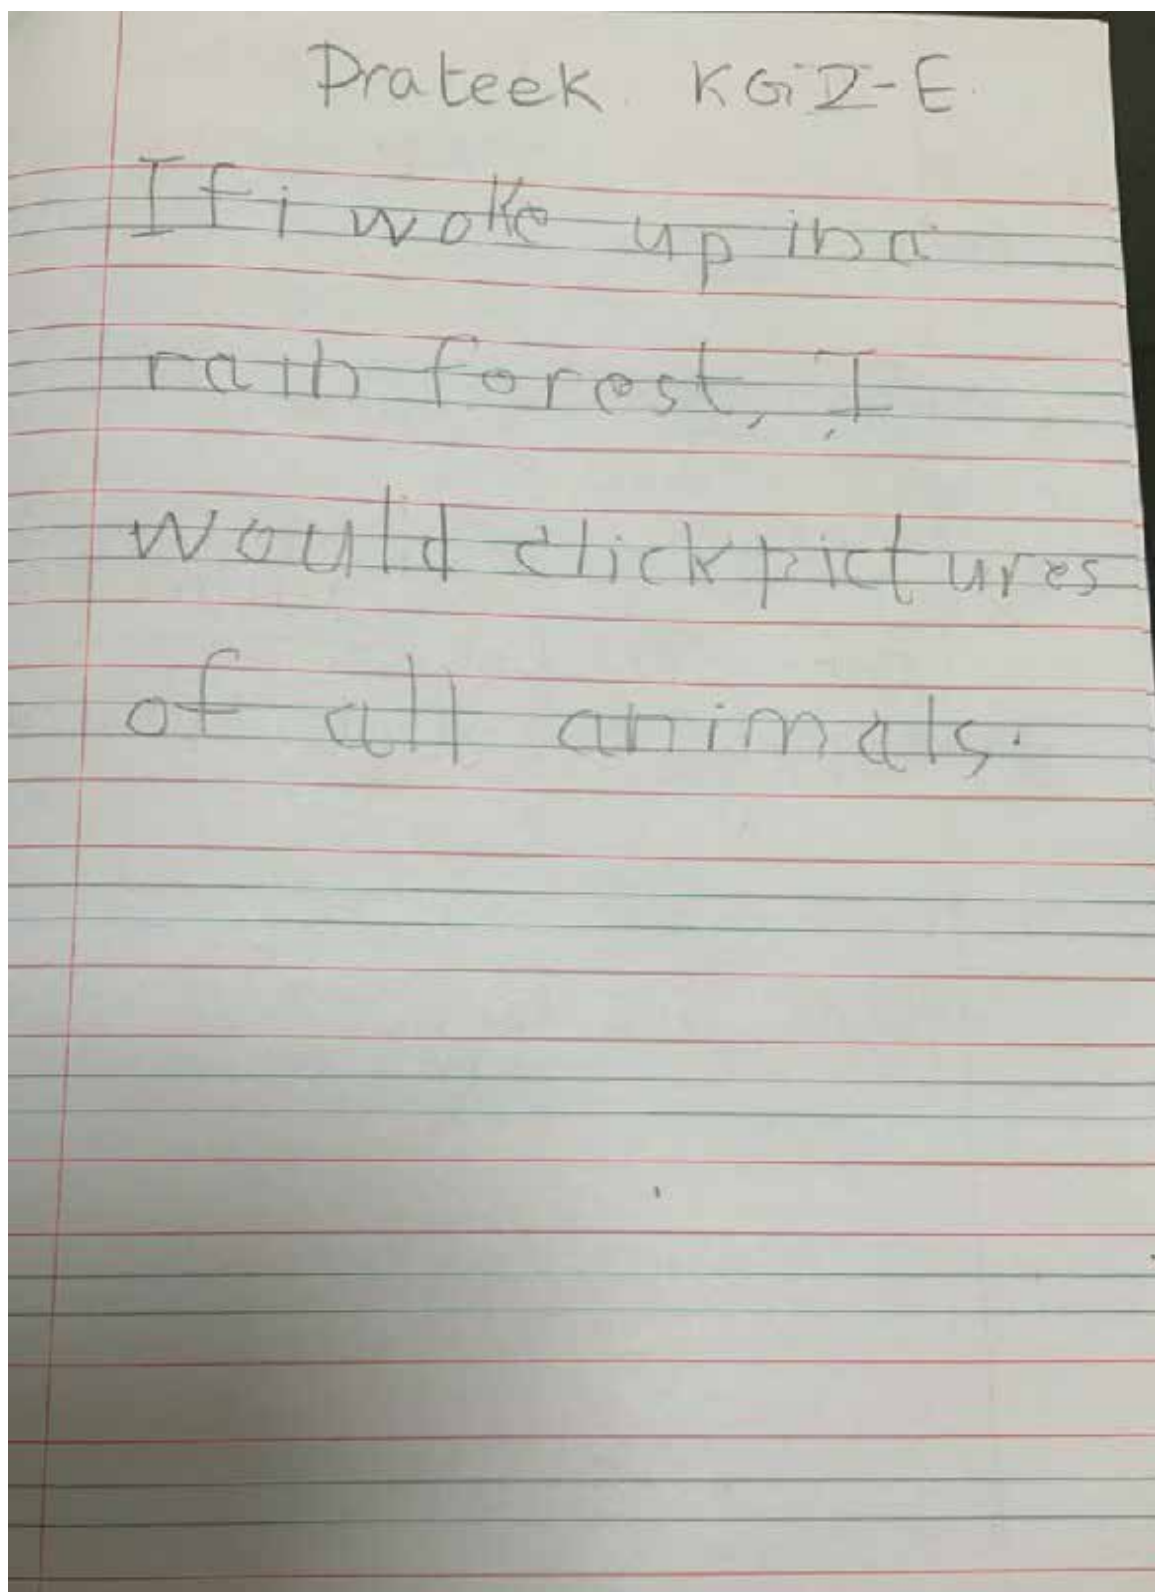 Prateek. KG2-E.
If i woke up in a
rain forest, I
would click pictures
of all animals.